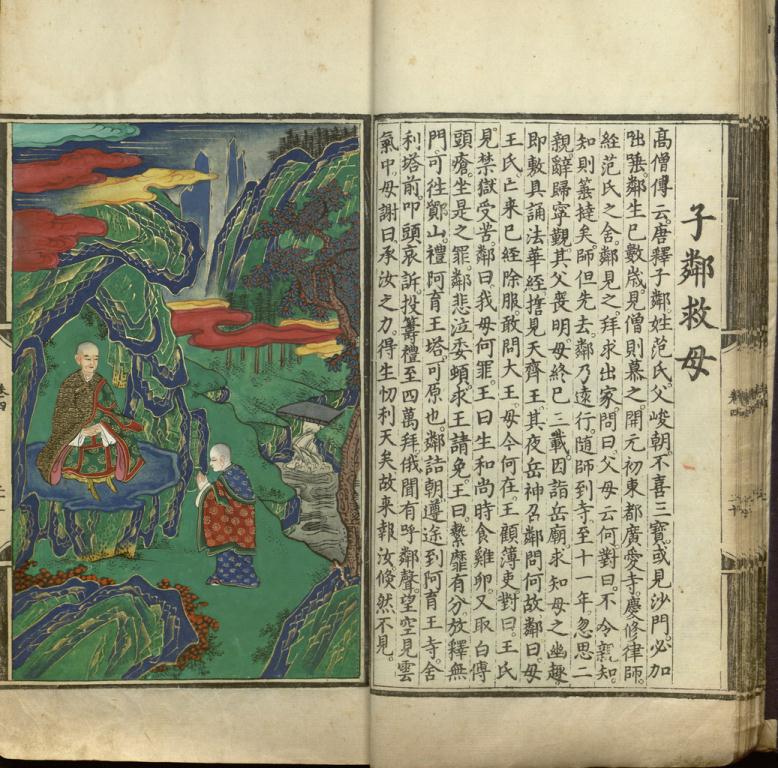 子鄰救母
高僧傳云。唐釋子鄰。姓范氏。父峻朝。不喜三寶。或見沙門。必加
咄唾。鄰生已數歲。見僧則慕之。開元初。東都廣愛寺。慶修律師。
經范氏之舍。鄰見之。拜求出家。問曰。父母云何。對曰。不令親知。
知則箠撻矣。師但先去。鄰乃遠行。隨師到寺。至十一年。忽思二
親。辭歸寧覲。其父喪明。母終已三載。因詣岳廟。求知母之幽趣。
即敷具誦法華經。誓見天齊王。其夜岳神召鄰問何故。鄰曰。母
王氏亡來已經除服。敢問大王。母今何在。王顧簿吏對曰。王氏
見禁獄受苦。鄰曰。我母何罪。王曰。生和尚時。食雞卵。又取白傅
頭瘡。坐是之罪。鄰悲泣委頓。求王請免。王曰。縶靡有分。放釋無
門。可往鄮山。禮阿育王塔。可原也。鄰詰朝遵途。到阿育王寺。舍
利塔前叩頭哀訴。投籌禮至四萬拜。俄聞有呼鄰聲。望空見雲
氣中。母謝曰。承汝之力。得生忉利天矣。故來報汝。倏然不見。
卷四